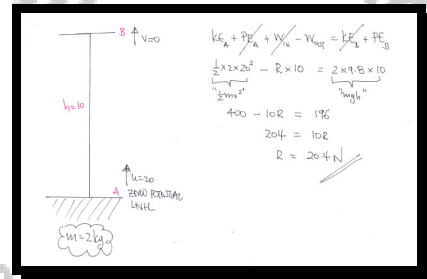 B ↑ V=0
h=10
↑ u=20
A ZERO POTENTIAL
LEVEL
m=2kg
KE_A + PE_A + W_IN - W_OUT = KE_B + PE_B
½×2×20² - R×10 = 2×9.8×10
"½mv²" "mgh"
400 - 10R = 196
204 = 10R
R = 20.4N